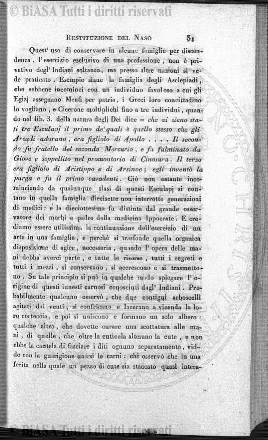 © BIASA Tutti i diritti riservati
RESTITUZIONE DEL NASO 51
Quest' uso di conservare in alcune famiglie per discen-
denza, l'esercizio esclusivo di una professione, non è pri-
vativo degl' Indiani soltanto, ma presso altre nazioni si ve-
de praticato. Esculapio siamo la famiglia degli Asclepiadi,
che sebbene incominci con un individuo favoloso a cui gli
Egizj assegnano Menfi per patria, i Greci loro concittadino
lo vogliono, e Cicerone moltiplichi fino a tre individui, quan-
do nel lib. 3. della natura degli Dei dice = che si sieno sta-
ti tre Esculapj il primo de' quali è quello stesso che gli
Arcadi adorano, era figliolo di Apollo .... Il secon-
do fu fratello del secondo Mercurio, e fu fulminato da
Giove e seppellito nel promontorio di Cinosura. Il terzo
era figliolo di Aristippo e di Arsinoe; egli inventò la
purga e fu il primo cavadenti. Ciò non ostante inco-
minciando da qualunque siasi di questi Esculapj si con-
tano in quella famiglia diecisette non interrotte generazioni
di medici; e la diecisettesima fu distinta dal grande osser-
vatore dei morbi e padre della medicina Ippocrate. E cre-
diamo essere utilissima la continuazione dell'esercizio di un
arte in una famiglia, e perchè si trasfonde quella organica
disposizione di agire, necessaria, quando l'opera delle ma-
ni debba avervi parte, e tutte le risorse, tutti i segreti e
tutti i mezzi, si conservano, si accrescono e si trasmetto-
no. Se tale principio si può in qualche modo spiegare l'o-
rigine di questi innesti carnosi conosciuti dagl' Indiani. Pro-
babilmente qualcuno osservò, che due contigui arboscelli
agitati dai venti, si confricano e lacerano a vicenda la lo-
ro corteccia, e poi si uniscono e formano un solo albero:
qualche altro, che dovette curare una scottatura alle ma-
ni, di quelle, che oltre la cuticola alterano la cute, e non
ebbe la cautela di fasciare i diti ognuno separatamente, vid-
de con la guarigione unirsi le carni: chi osservò che in una
ferita nella quale un pezzo di cute sia staccato quasi intera-